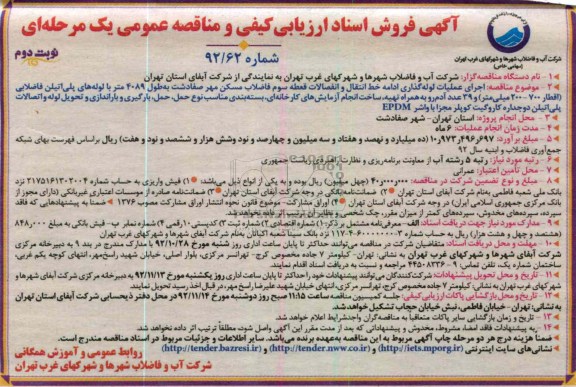 آگهی فروش اسناد ارزیابی کیفی و مناقصه عمومی یک مرحله‌ای
شماره ۹۲/۶۲
نوبت دوم
شرکت آب و فاضلاب شهرها و شهرکهای غرب تهران
(سهامی خاص)
۱- نام دستگاه مناقصه‌گزار: شرکت آب و فاضلاب شهرها و شهرکهای غرب تهران به نمایندگی از شرکت آبفای استان تهران
۲- موضوع مناقصه: اجرای عملیات لوله‌گذاری ادامه خط انتقال و انفصالات قطعه سوم فاضلاب مسکن مهر صفادشت به‌طول ۴۰۸۹ متر با لوله‌های پلی‌اتیلن فاضلابی
(اقطار ۷۰۰-۲۰۰ میلی‌متر) و ۳۹ عدد آدم‌رو به‌همراه تهیه، ساخت، انجام آزمایش‌های کارخانه‌ای، بسته‌بندی مناسب نوع حمل، حمل، بارگیری و باراندازی و تحویل لوله و اتصالات
پلی‌اتیلن دوجداره کاروگیت کوپلر مجزا با واشر EPDM
۳- محل انجام پروژه: استان تهران - شهر صفادشت
۴- مدت زمان انجام عملیات: ۶ ماه
۵- مبلغ برآورد: ۱۰٫۹۷۳٫۴۹۶٫۶۹۷ (ده میلیارد و نهصد و هفتاد و سه میلیون و چهارصد و نود وشش هزار و ششصد و نود و هفت) ریال براساس فهرست بهای شبکه
جمع‌آوری فاضلاب و ابنیه سال ۹۲
۶- رتبه مورد نیاز: رتبه ۵ رشته آب از معاونت برنامه‌ریزی و نظارت راهبردی ریاست جمهوری
۷- محل تأمین اعتبار: عمرانی
۸- مبلغ و نوع تضمین شرکت در مناقصه: ۴۰٫۰۰۰٫۰۰۰ (چهل میلیون) ریال بوده و به یکی از انواع ذیل می‌باشد: ۱) فیش واریزی به حساب شماره ۲۱۷۵۲۱۶۳۰۳۰۰۴ نزد
بانک ملی شعبه قدس بنام شرکت آبفای استان تهران ۲) ضمانتنامه بانکی در وجه شرکت آبفای استان تهران ۳) ضمانتنامه صادره از موسسات اعتباری غیربانکی (دارای مجوز از
بانک مرکزی جمهوری اسلامی ایران) در وجه شرکت آبفای استان تهران ۴) اوراق مشارکت- موضوع قانون نحوه انتشار اوراق مشارکت مصوب ۱۳۷۶ - ضمنا به پیشنهادهایی که فاقد
سپرده، سپرده‌های مخدوش، سپرده‌های کمتر از میزان مقرر، چک شخصی و نظایر آن ترتیب اثر داده نخواهد شد.
۹- مدارک مورد نیاز جهت دریافت اسناد: الف- معرفی‌نامه مشتمل بر ذکر: ۱) شماره اقتصادی ۲) شماره ثبت ۳) کدپستی ۱۰ رقمی ۴) شماره نمابر ب- فیش بانکی به مبلغ ۸۴۸٫۰۰۰
(هشتصد و چهل و هشت هزار) ریال به حساب شماره بنام شرکت آبفای شهرها و شهرکهای غرب تهران
۱۰- مهلت و محل دریافت اسناد: متقاضیان شرکت در مناقصه می‌توانند حداکثر تا پایان ساعت اداری روز شنبه مورخ ۹۲/۱۰/۲۸ با مدارک مندرج در بند ۹ به دبیرخانه مرکزی
شرکت آبفای شهرها و شهرکهای غرب تهران به نشانی: تهران- کیلومتر ۷ جاده مخصوص کرج- تهرانسر مرکزی، بلوار اصلی، خیابان شهید راسخ‌مهر، انتهای کوچه یکم غربی،
ساختمان شماره یک، تلفن: تماس ۹-۴۴۵۰۸۳۳۶ مراجعه و نسبت به دریافت اسناد اقدام نمایند.
۱۱- تاریخ و محل تحویل پیشنهادات: شرکت‌کنندگان می‌توانند پیشنهادات خود را حداکثر تا پایان ساعت اداری روز یکشنبه مورخ ۹۲/۱۱/۱۳ به دبیرخانه مرکزی شرکت آبفای شهرها و
شهرکهای غرب تهران به نشانی: کیلومتر ۷ جاده مخصوص کرج، تهرانسر مرکزی، انتهای خیابان شهید علیرضا راسخ مهر، در قبال اخذ رسید تحویل نمایند.
۱۲- تاریخ و محل بازگشایی پاکات ارزیابی کیفی: جلسه کمیسیون مناقصه ساعت ۱۱:۱۵ صبح روز دوشنبه مورخ ۹۲/۱۱/۱۴ در محل دفتر ذیحسابی شرکت آبفای استان تهران
به نشانی: تهران- خیابان فاطمی، نبش خیابان حجاب تشکیل خواهد شد.
۱۳- تاریخ و محل بازگشایی سایر پاکات متعاقبا به مناقصه‌گران واجدشرایط اعلام خواهد شد.
۱۴- به پیشنهادات فاقد امضا، مشروط، مخدوش و پیشنهاداتی که بعد از مدت مقرر این آگهی واصل شوند، مطلقا ترتیب اثر داده نخواهد شد.
ضمناً هزینه درج هر دو مرحله چاپ آگهی مربوط به این مناقصه به‌عهده برنده می‌باشد. سایر اطلاعات و جزئیات مربوط در اسناد مناقصه مندرج است.
نشانی‌های سایت اینترنتی (http://iets.mporg.ir) و (http://tender.nww.co.ir) و (http://tender.bazresi.ir)
روابط عمومی و آموزش همگانی
شرکت آب و فاضلاب شهرها و شهرکهای غرب تهران